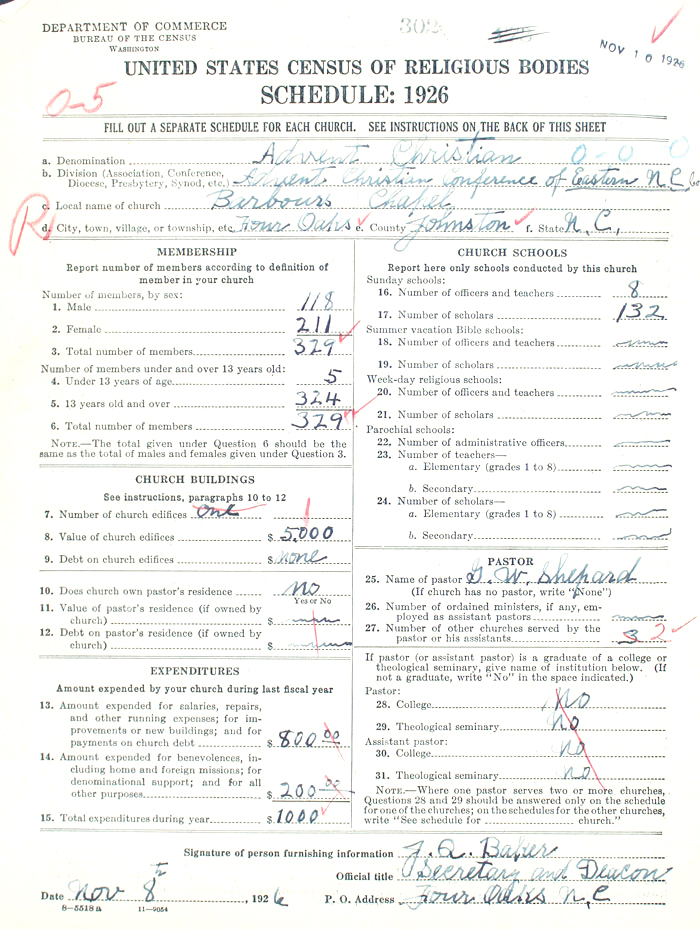 DEPARTMENT OF COMMERCE
BUREAU OF THE CENSUS
WASHINGTON
302
NOV 10 1926
UNITED STATES CENSUS OF RELIGIOUS BODIES
SCHEDULE: 1926
0-5
FILL OUT A SEPARATE SCHEDULE FOR EACH CHURCH. SEE INSTRUCTIONS ON THE BACK OF THIS SHEET
a. Denomination Advent Christian 0-0 0
b. Division (Association, Conference, Diocese, Presbytery, Synod, etc.) Advent Christian Conference of Eastern N.C.
c. Local name of church Berbours Chapel
d. City, town, village, or township, etc. Four Oaks e. County Johnston f. State N.C.,
MEMBERSHIP
Report number of members according to definition of member in your church
Number of members, by sex:
1. Male 118
2. Female 211
3. Total number of members 329
Number of members under and over 13 years old:
4. Under 13 years of age 5
5. 13 years old and over 324
6. Total number of members 329
NOTE.—The total given under Question 6 should be the same as the total of males and females given under Question 3.
CHURCH BUILDINGS
See instructions, paragraphs 10 to 12
7. Number of church edifices one 1
8. Value of church edifices $ 5,000
9. Debt on church edifices $ none
10. Does church own pastor's residence? no
Yes or No
11. Value of pastor's residence (if owned by church) $
12. Debt on pastor's residence (if owned by church) $
EXPENDITURES
Amount expended by your church during last fiscal year
13. Amount expended for salaries, repairs, and other running expenses; for improvements or new buildings; and for payments on church debt $ 800.00
14. Amount expended for benevolences, including home and foreign missions; for denominational support; and for all other purposes $ 200.00
15. Total expenditures during year $ 1000
CHURCH SCHOOLS
Report here only schools conducted by this church
Sunday schools:
16. Number of officers and teachers 8
17. Number of scholars 132
Summer vacation Bible schools:
18. Number of officers and teachers
19. Number of scholars
Week-day religious schools:
20. Number of officers and teachers
21. Number of scholars
Parochial schools:
22. Number of administrative officers
23. Number of teachers—
a. Elementary (grades 1 to 8)
b. Secondary
24. Number of scholars—
a. Elementary (grades 1 to 8)
b. Secondary
PASTOR
25. Name of pastor G. W. Shepard
(If church has no pastor, write "None")
26. Number of ordained ministers, if any, employed as assistant pastors
27. Number of other churches served by the pastor or his assistants 3 2
If pastor (or assistant pastor) is a graduate of a college or theological seminary, give name of institution below. (If not a graduate, write "No" in the space indicated.)
Pastor:
28. College No
29. Theological seminary No
Assistant pastor:
30. College No
31. Theological seminary No
NOTE.—Where one pastor serves two or more churches, Questions 28 and 29 should be answered only on the schedule for one of the churches; on the schedules for the other churches, write "See schedule for church."
Signature of person furnishing information J. Q. Baker
Official title Secretary and Deacon
Date Nov 8, 1926 P. O. Address Four Oaks N,C
8-5518 a 11-9054